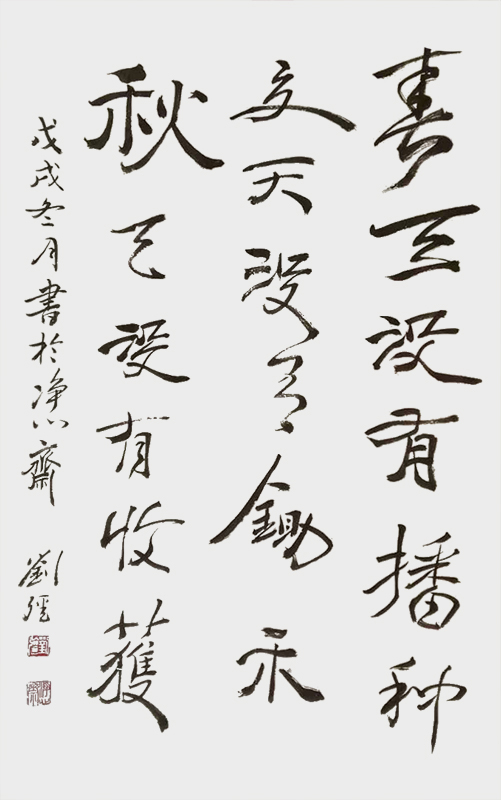 春天没有播种
夏天没有鋤禾
秋天没有收獲
戊戌冬月書於净心齋 劉